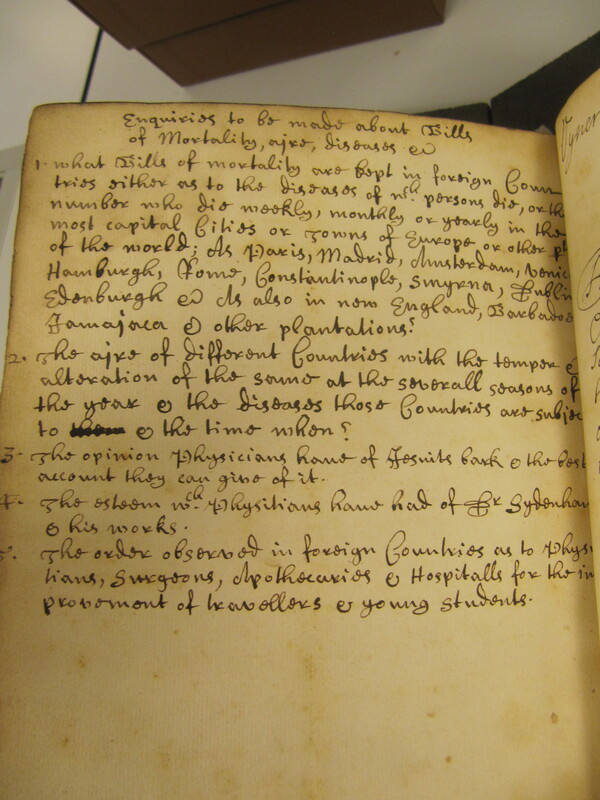 Enquiries to be made about Bills
of Mortality, aire, diseases &
1. what Bills of mortality are kept in foreign Coun
tries either as to the diseases of wch. persons die, or the
number who die weekly, monthly or yearly in the
most capital Cities or Towns of Europe or other pl
of the world; As Paris, Madrid, Amsterdam, Venic
Hamburgh, Rome, Constantinople, Smyrna, Dublin
Edenburgh & As also in new England, Barbadoe
Jamajaca & other plantations?
2. The aire of different Countries with the temper &
alteration of the same at the severall seasons of
the year & the diseases those Countries are subjec
to them & the time when?
3. The opinion Physicians have of Jesuits bark & the best
account they can give of it.
4. The esteem wch. Physitians have had of Dr Sydenham
& his works.
5. The order observed in foreign Countries as to Physi
tians, Surgeons, Apothecaries & Hospitalls for the im
provement of travellers & young students.
Vyner